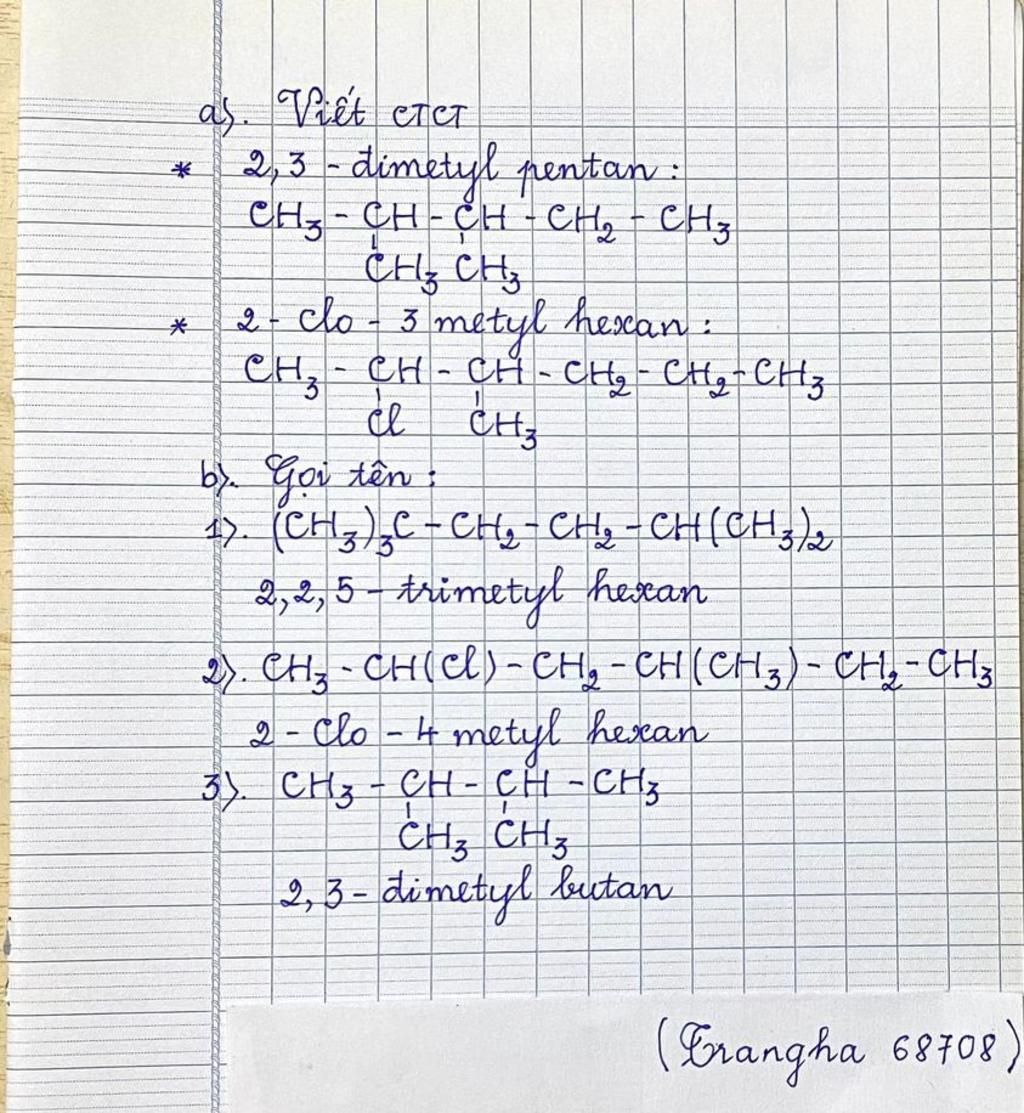 a). Viết CTCT
* 2,3 - đimetyl pentan :
CH₃ - CH - CH - CH₂ - CH₃
CH₃ CH₃
* 2 - Clo - 3 metyl hexan :
CH₃ - CH - CH - CH₂ - CH₂ - CH₃
Cl CH₃
b). Gọi tên :
1). (CH₃)₃C - CH₂ - CH₂ - CH(CH₃)₂
2,2,5 - trimetyl hexan
2). CH₃ - CH(Cl) - CH₂ - CH(CH₃) - CH₂ - CH₃
2 - Clo - 4 metyl hexan
3). CH₃ - CH - CH - CH₃
CH₃ CH₃
2,3 - đimetyl butan
(Trangha 68708)